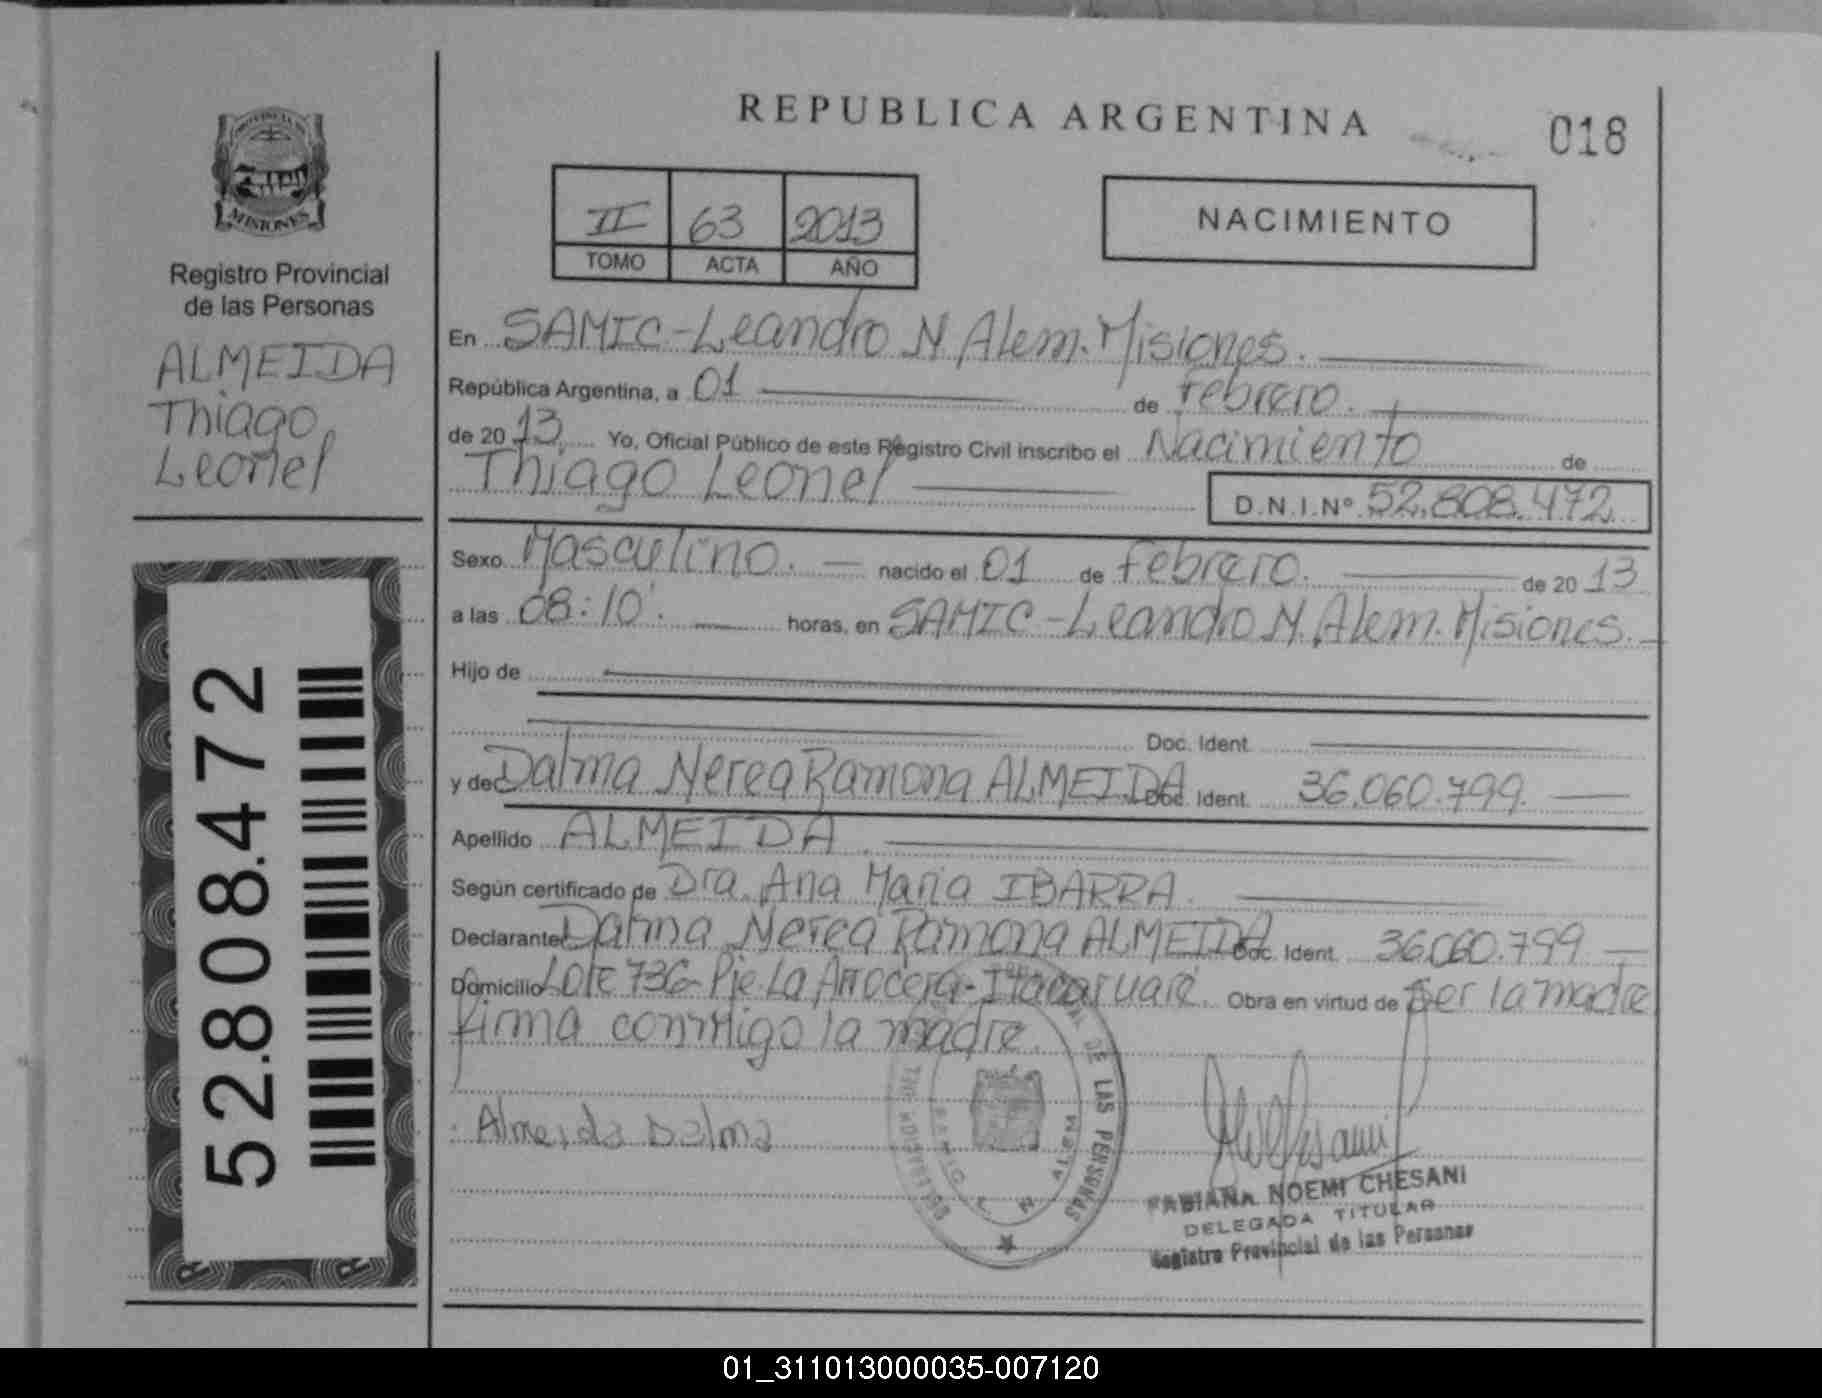 REPUBLICA ARGENTINA
018
PROVINCIA DE
MISIONES
Registro Provincial
de las Personas
ALMEIDA
Thiago
Leonel
52.808.472
II 63 2013
TOMO ACTA AÑO
NACIMIENTO
En SAMIC-Leandro N. Alem. Misiones.
República Argentina, a 01 de febrero.
de 2013 Yo, Oficial Público de este Registro Civil inscribo el Nacimiento de
Thiago Leonel D.N.I.Nº 52.808.472
Sexo Masculino. nacido el 01 de febrero. de 2013
a las 08:10'. horas, en SAMIC-Leandro N. Alem. Misiones.
Hijo de
Doc. Ident.
y de Dalma Nerea Ramona ALMEIDA Doc. Ident. 36.060.799.
Apellido ALMEIDA.
Según certificado de Dra. Ana Maria IBARRA.
Declarante Dalma Nerea Ramona ALMEIDA Doc. Ident. 36.060.799.
Domicilio Lote 736- Pje. La Arrocera- Itacaruaré. Obra en virtud de ser la madre
firma conmigo la madre.
Almeida Dalma
DE LAS PERSONAS
SAMIC L. N. ALEM
FABIANA NOEMI CHESANI
DELEGADA TITULAR
Registro Provincial de las Personas
01_311013000035-007120